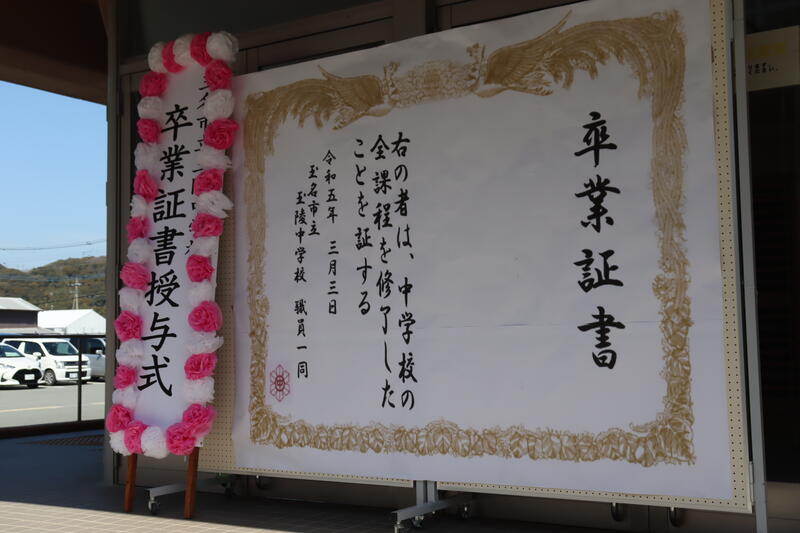 卒業証書
右の者は、中学校の
全課程を修了した
ことを証する
令和五年 三月三日
玉名市立
玉陵中学校 職員一同
卒業証書授与式